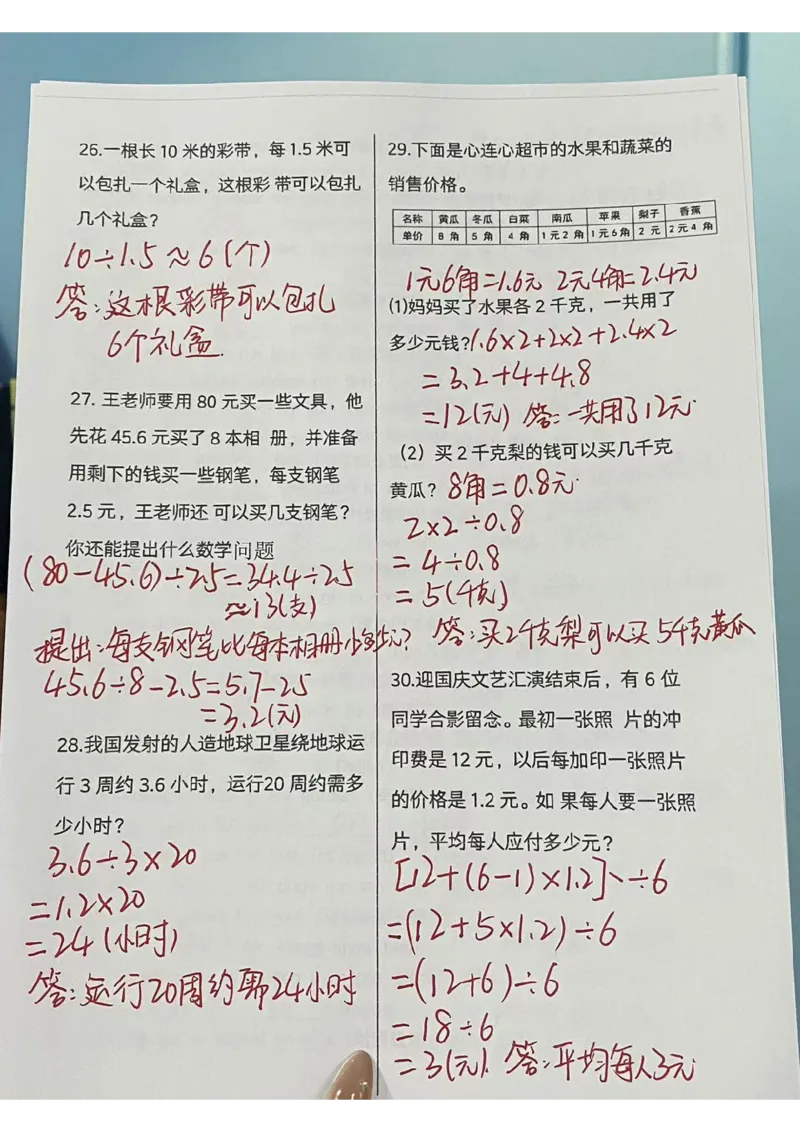 26.一根长 10 米的彩带，每 1.5 米可
以包扎一个礼盒，这根彩 带可以包扎
几个礼盒？
10÷1.5≈6(个)
答:这根彩带可以包扎
6个礼盒.
27. 王老师要用 80 元买一些文具，他
先花 45.6 元买了 8 本相 册，并准备
用剩下的钱买一些钢笔，每支钢笔
2.5 元，王老师还 可以买几支钢笔？
你还能提出什么数学问题
(80-45.6)÷2.5=34.4÷2.5
≈13(支)
提出:每支钢笔比每本相册少多少元?
45.6÷8-2.5=5.7-2.5
=3.2(元)
28.我国发射的人造地球卫星绕地球运
行 3 周约 3.6 小时，运行20 周约需多
少小时？
3.6÷3×20
=1.2×20
=24(小时)
答:运行20周约需24小时
29.下面是心连心超市的水果和蔬菜的
销售价格。
名称 黄瓜 冬瓜 白菜 南瓜 苹果 梨子 香蕉
单价 8 角 5 角 4 角 1元2 角 1元6角 2 元 2元4 角
1元6角=1.6元 2元4角=2.4元
(1)妈妈买了水果各 2 千克，一共用了
多少元钱？1.6×2+2×2+2.4×2
=3.2+4+4.8
=12(元) 答:一共用了12元.
（2）买 2 千克梨的钱可以买几千克
黄瓜？ 8角=0.8元.
2×2÷0.8
=4÷0.8
=5(千克)
答:买2千克梨可以买5千克黄瓜
30.迎国庆文艺汇演结束后，有 6 位
同学合影留念。最初一张照 片的冲
印费是 12 元，以后每加印一张照片
的价格是 1.2 元。如 果每人要一张照
片，平均每人应付多少元？
[12+(6-1)×1.2]÷6
=(12+5×1.2)÷6
=(12+6)÷6
=18÷6
=3(元). 答:平均每人3元